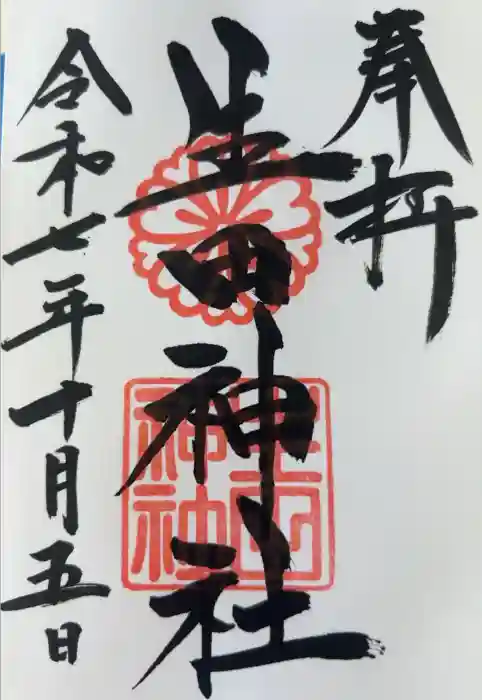 奉拝
生田神社
生田
神社
令和七年十月五日